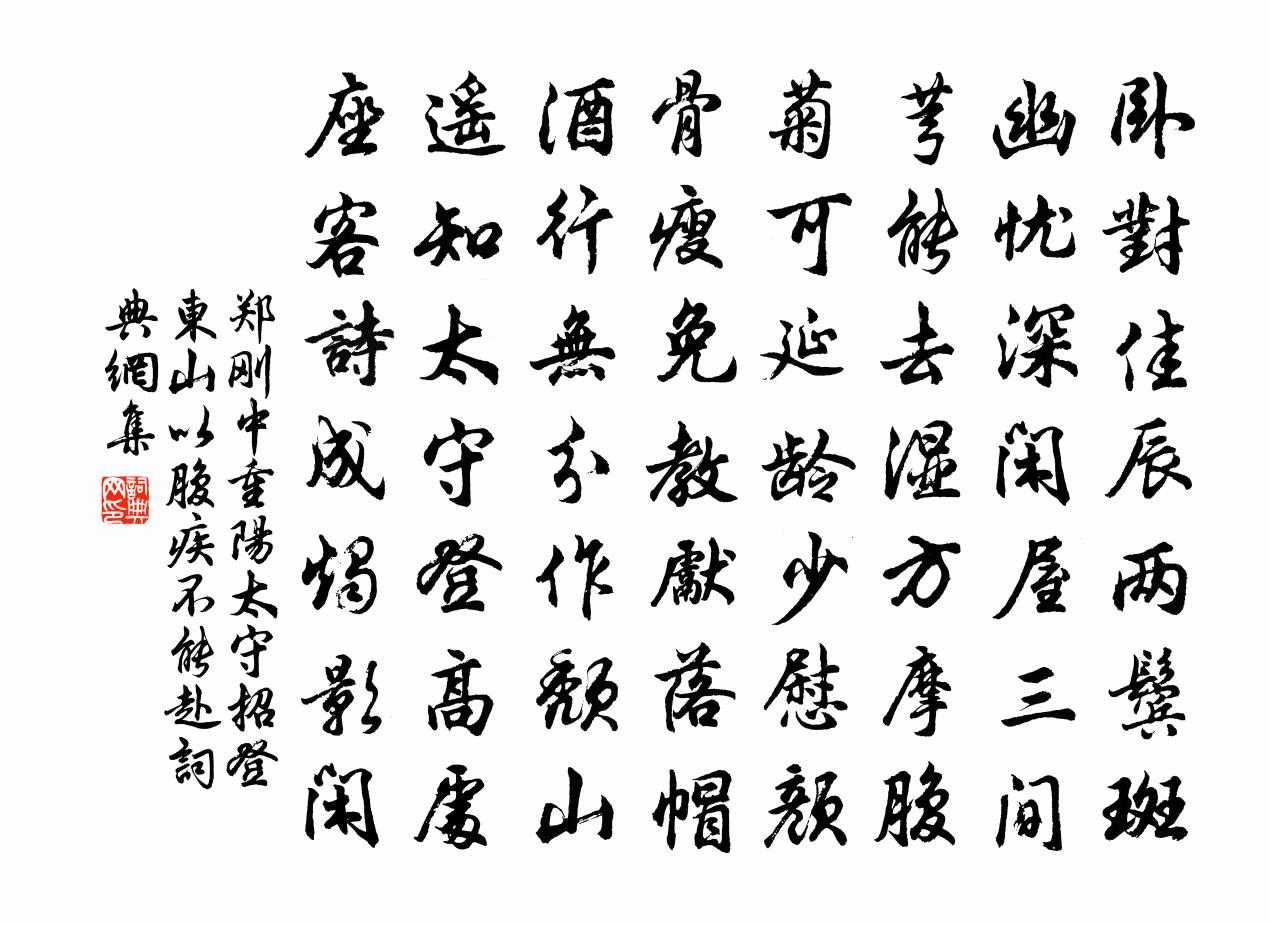 卧對佳辰两鬓斑
幽忧深闲屋三间
芎能去湿方摩腹
菊可延龄少慰顏
骨瘦免教獻落帽
酒行無分作頹山
遥知太守登高處
座客詩成燭影闲
郑刚中重陽太守招登
東山以腹疾不能赴詞
典網集
詞典
网印